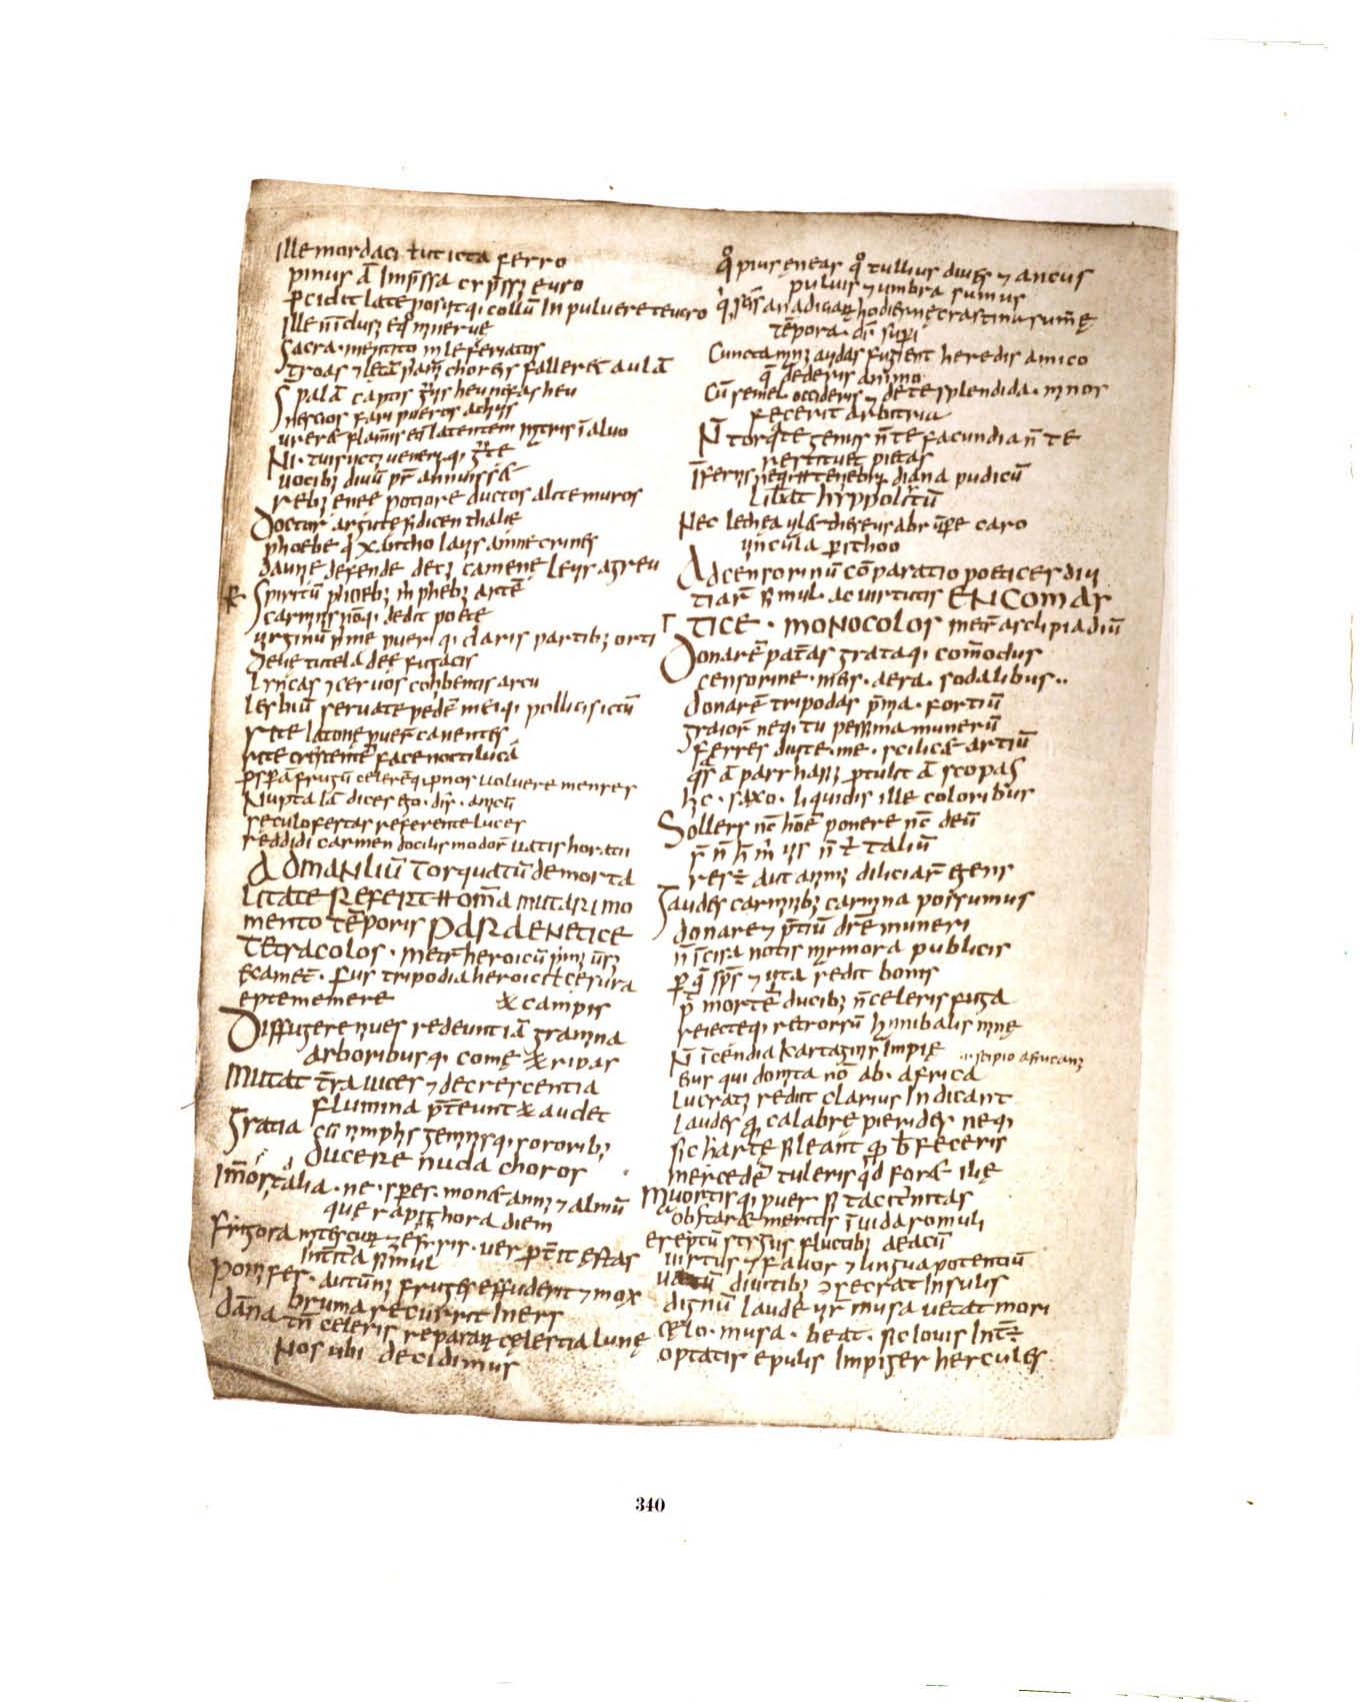 Ille mordaci uł ut icta ferro
pinus ā Imp̄ssa cup̄ssꝫ euro
ꝑcidit late posuitqꝫ collū In puluere teucro
Ille nō īclusꝫ equo mineruę
Sacra mentito male feriatos
troas ⁊ lętā priami choreis fallerꝫ aulā
S palā captis heu nefas heu
Nescios fari pueros achiuis
urerꝫ flāmis etiā latentem matris ī aluo
Ni tuis uictꝫ uenerisqꝫ gͣte
uocibꝫ diuū pr̄ annuissꝫ
rebꝫ eneę potiore ductos alite muros
Doctor argute thalie
phoebe q̇ xantho lauis amne crines
daunie defende decꝫ camenę leuis agreu
Spiritū phoebꝫ m̄ phebꝫ artē
carminis nomqꝫ dedit poete
uirginū p̄me pueri qꝫ claris patribꝫ orti
Delie tutela deę fugacis
lyncas ⁊ ceruos cohibentis arcu
lesbiū seruate pedē meiqꝫ pollicis ictū
rite latonę puerū canentes
rite crescentē face noctilucā
ꝓsperā frugū celerēqꝫ pronos uoluere menses
Nupta iā dices ego dis amicū
seculo festas referente luces
reddidi carmen docilis modorū uatis horatii
ADMANLIŪ Torquatū de morta
Litate Refert omīa mutari mo
mento tēporis PARAENETICE
Tetracolos · metr̄ heroicū
examet̄ · sus tripodia heroici cesura
eptememere
Diffugere niues redeunt iā gramina x campis
arboribusqꝫ comę x ripas
Mutat t̄ra uices ⁊ decrescentia
flumina p̄tereunt x audet
Gratia cū nimphis geminisqꝫ sororibꝫ
ducere nuda choros
Im̄ortalia · ne · speres · monet annꝫ ⁊ almū
quę rapit hora diem
Frigora mitescunt zefiris · uer ꝓterit ęstas
Interitura simul
Pomifer · autūnꝫ fruges effuderit ⁊ mox
bruma recurrit Iners
Dāna tn̄ celeris reparant cęlestia lunę
Nos ubi decidimus
q̊ pius eneas q̊ tullius diues ⁊ ancus
puluis ⁊ umbra sumus
q̇s scit an adiciant hodiernę crastina summę
tēpora · di sup̄i
Cuncta manꝫ auidas fugient heredis amico
q̄ dederis animo
Cū semel occideris ⁊ de te splendida · minos
fecerit arbitria
N̄ torq̄te genus n̄ te facundia n̄ te
restituet pietas
Īfernis neqꝫ tenebris diana pudicū
liberat hyppolitū
Nec lethea ualet theseus abrūpe caro
uincula pirithoo
Ad censorinū cōparatio poetices diui
tiar̄ simul · ac uirtutis ENComAS
TICE · MONOCOLOS metr̄ asclipiadiū
Donarē pat̄as grataqꝫ com̄odus
censorine · meis · aera · sodalibus ··
donarē tripodas p̄mia · fortiū
graior̄ neqꝫ tu pessima munerū
ferres diuite · me · scilicꝫ artiū
q̄s ā parrhasiꝫ ꝓtulit ā scopas
hic · saxo · liquidis ille coloribus
Sollers nc̄ hoīe ponere nc̄ deū
s̄ n̄ h̄ m̄ uis n̄ t̄ taliū
res ē aut animꝫ diliciar̄ egens
Gaudes carminibꝫ carmina possumus
donare ⁊ p̄tiū dr̄e muneri
n̄ īcisa notis marmora publicis
ꝑ q̄ sp̄s ⁊ uita redit bonis
p̄ mortē ducibꝫ n̄ celeris fuga
reiecteqꝫ retrorsū hannibalis minę
N̄ īcendia kartaginis Impię · scipio africanꝫ
Eius qui domita nom̄ ab · africa
Lucratꝫ redit clarius Indicant
laudes q̄ calabrę pierides neqꝫ
si chartę sileant q̄ b̄ feceris
mercedē tuleris q̇d foret ilię
Mauortisqꝫ puer si taciturnitas
obstaret meritis īuida romuli
ereptū stygiis fluctibꝫ aeacū
uirtus ⁊ fauor ⁊ lingua potentiū
uatū diuitibꝫ ꝯsecrat Insulis
dignū laude uir̄ musa uetat mori
cęlo · musa · beat · sic Iouis Int̄ē
optatis epulis Impiger hercules
340